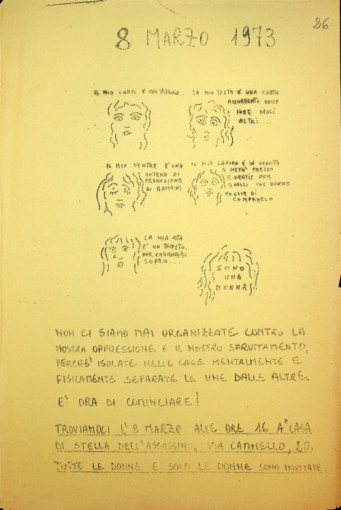 26
8 MARZO 1973
IL MIO CUORE È
LA MIA TESTA È UNA CARTA
ASSORBENTE DELLE
IDEE DEGLI
ALTRI...
IL MIO VENTRE È UNA
CATENA DI
PRODUZIONE
DI BAMBINI
IL MIO LAVORO È IN VENDITA
A METÀ PREZZO
E GRATIS PER
QUELLI CHE HANNO
VOGLIA DI
COMPRARLO
LA MIA VITA
È UN
PER CAMMINARCI
SOPRA...
SONO
UNA
DONNA
NON CI SIAMO MAI ORGANIZZATE CONTRO LA
NOSTRA OPPRESSIONE E IL NOSTRO SFRUTTAMENTO,
PERCHE' ISOLATE NELLE CASE MENTALMENTE E
FISICAMENTE SEPARATE LE UNE DALLE ALTRE.
E' ORA DI COMINCIARE!
TROVIAMOCI L'8 MARZO ALLE ORE 16 A CASA
DI STELLA DELL'ASSASSINO, VIA CAMMELLO, 20.
TUTTE LE DONNE E SOLO LE DONNE SONO INVITATE.